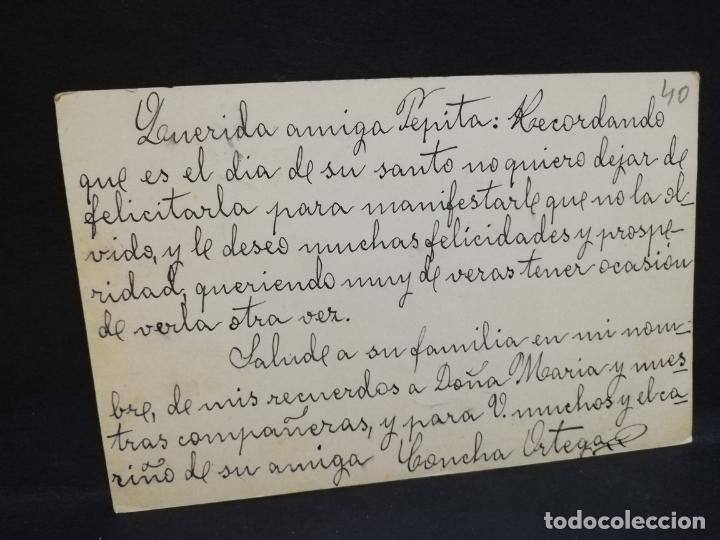 40
Querida amiga Pepita: Recordando
que es el dia de su santo no quiero dejar de
felicitarla para manifestarle que no la ol-
vido, y le deseo muchas felicidades y prospe-
ridad, queriendo muy de veras tener ocasión
de verla otra vez.
Salude a su familia en mi nom-
bre, de mis recuerdos a Doña Maria y nues-
tras compañeras, y para V. muchos y el ca-
riño de su amiga Concha Ortega
todocoleccion.net